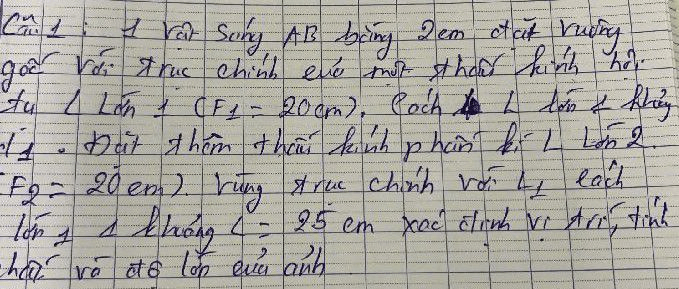 Câu 1 : 1 vật sáng AB bằng 2cm đặt vuông
góc với trục chính của một thấu kính hội
tụ L Lớn 1 (F1 = 20cm). Cách L lớn 1 khoảng
d1. Đặt thêm thấu kính phân kì L Lớn 2
F2 = 20cm). Vùng trục chính với L1 cách
lớn 1 1 khoảng L = 25 cm xác định vị trí, tính
chất và độ lớn của ảnh